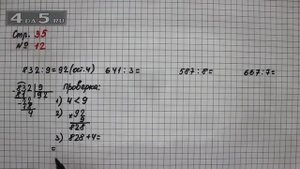 4PDA5.RU
Стр. 35
№ 12
832:9=92(ост.4) 641:3= 587:8= 667:7=
832 9 Проверка:
81 92 1) 4<9
22 2) 92
18 × 9
4 828
3) 828+4=
=